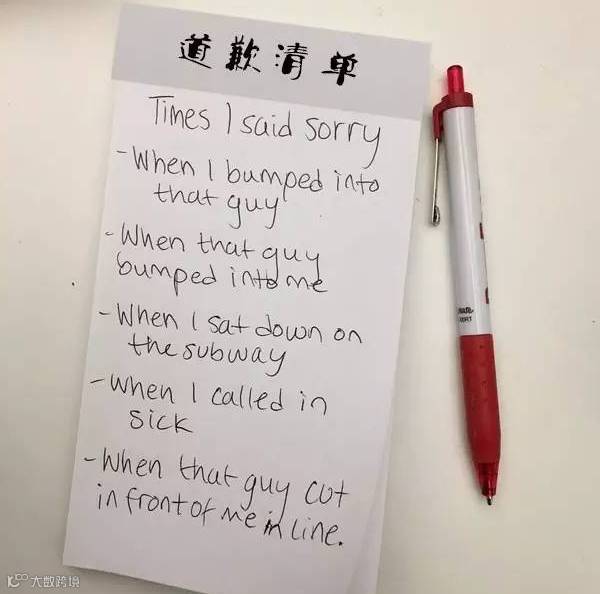 道歉清单
Times I said sorry
- When I bumped into
that guy
- When that guy
bumped into me
- When I sat down on
the subway
- When I called in
sick
- When that guy cut
in front of me in line.
大数跨境